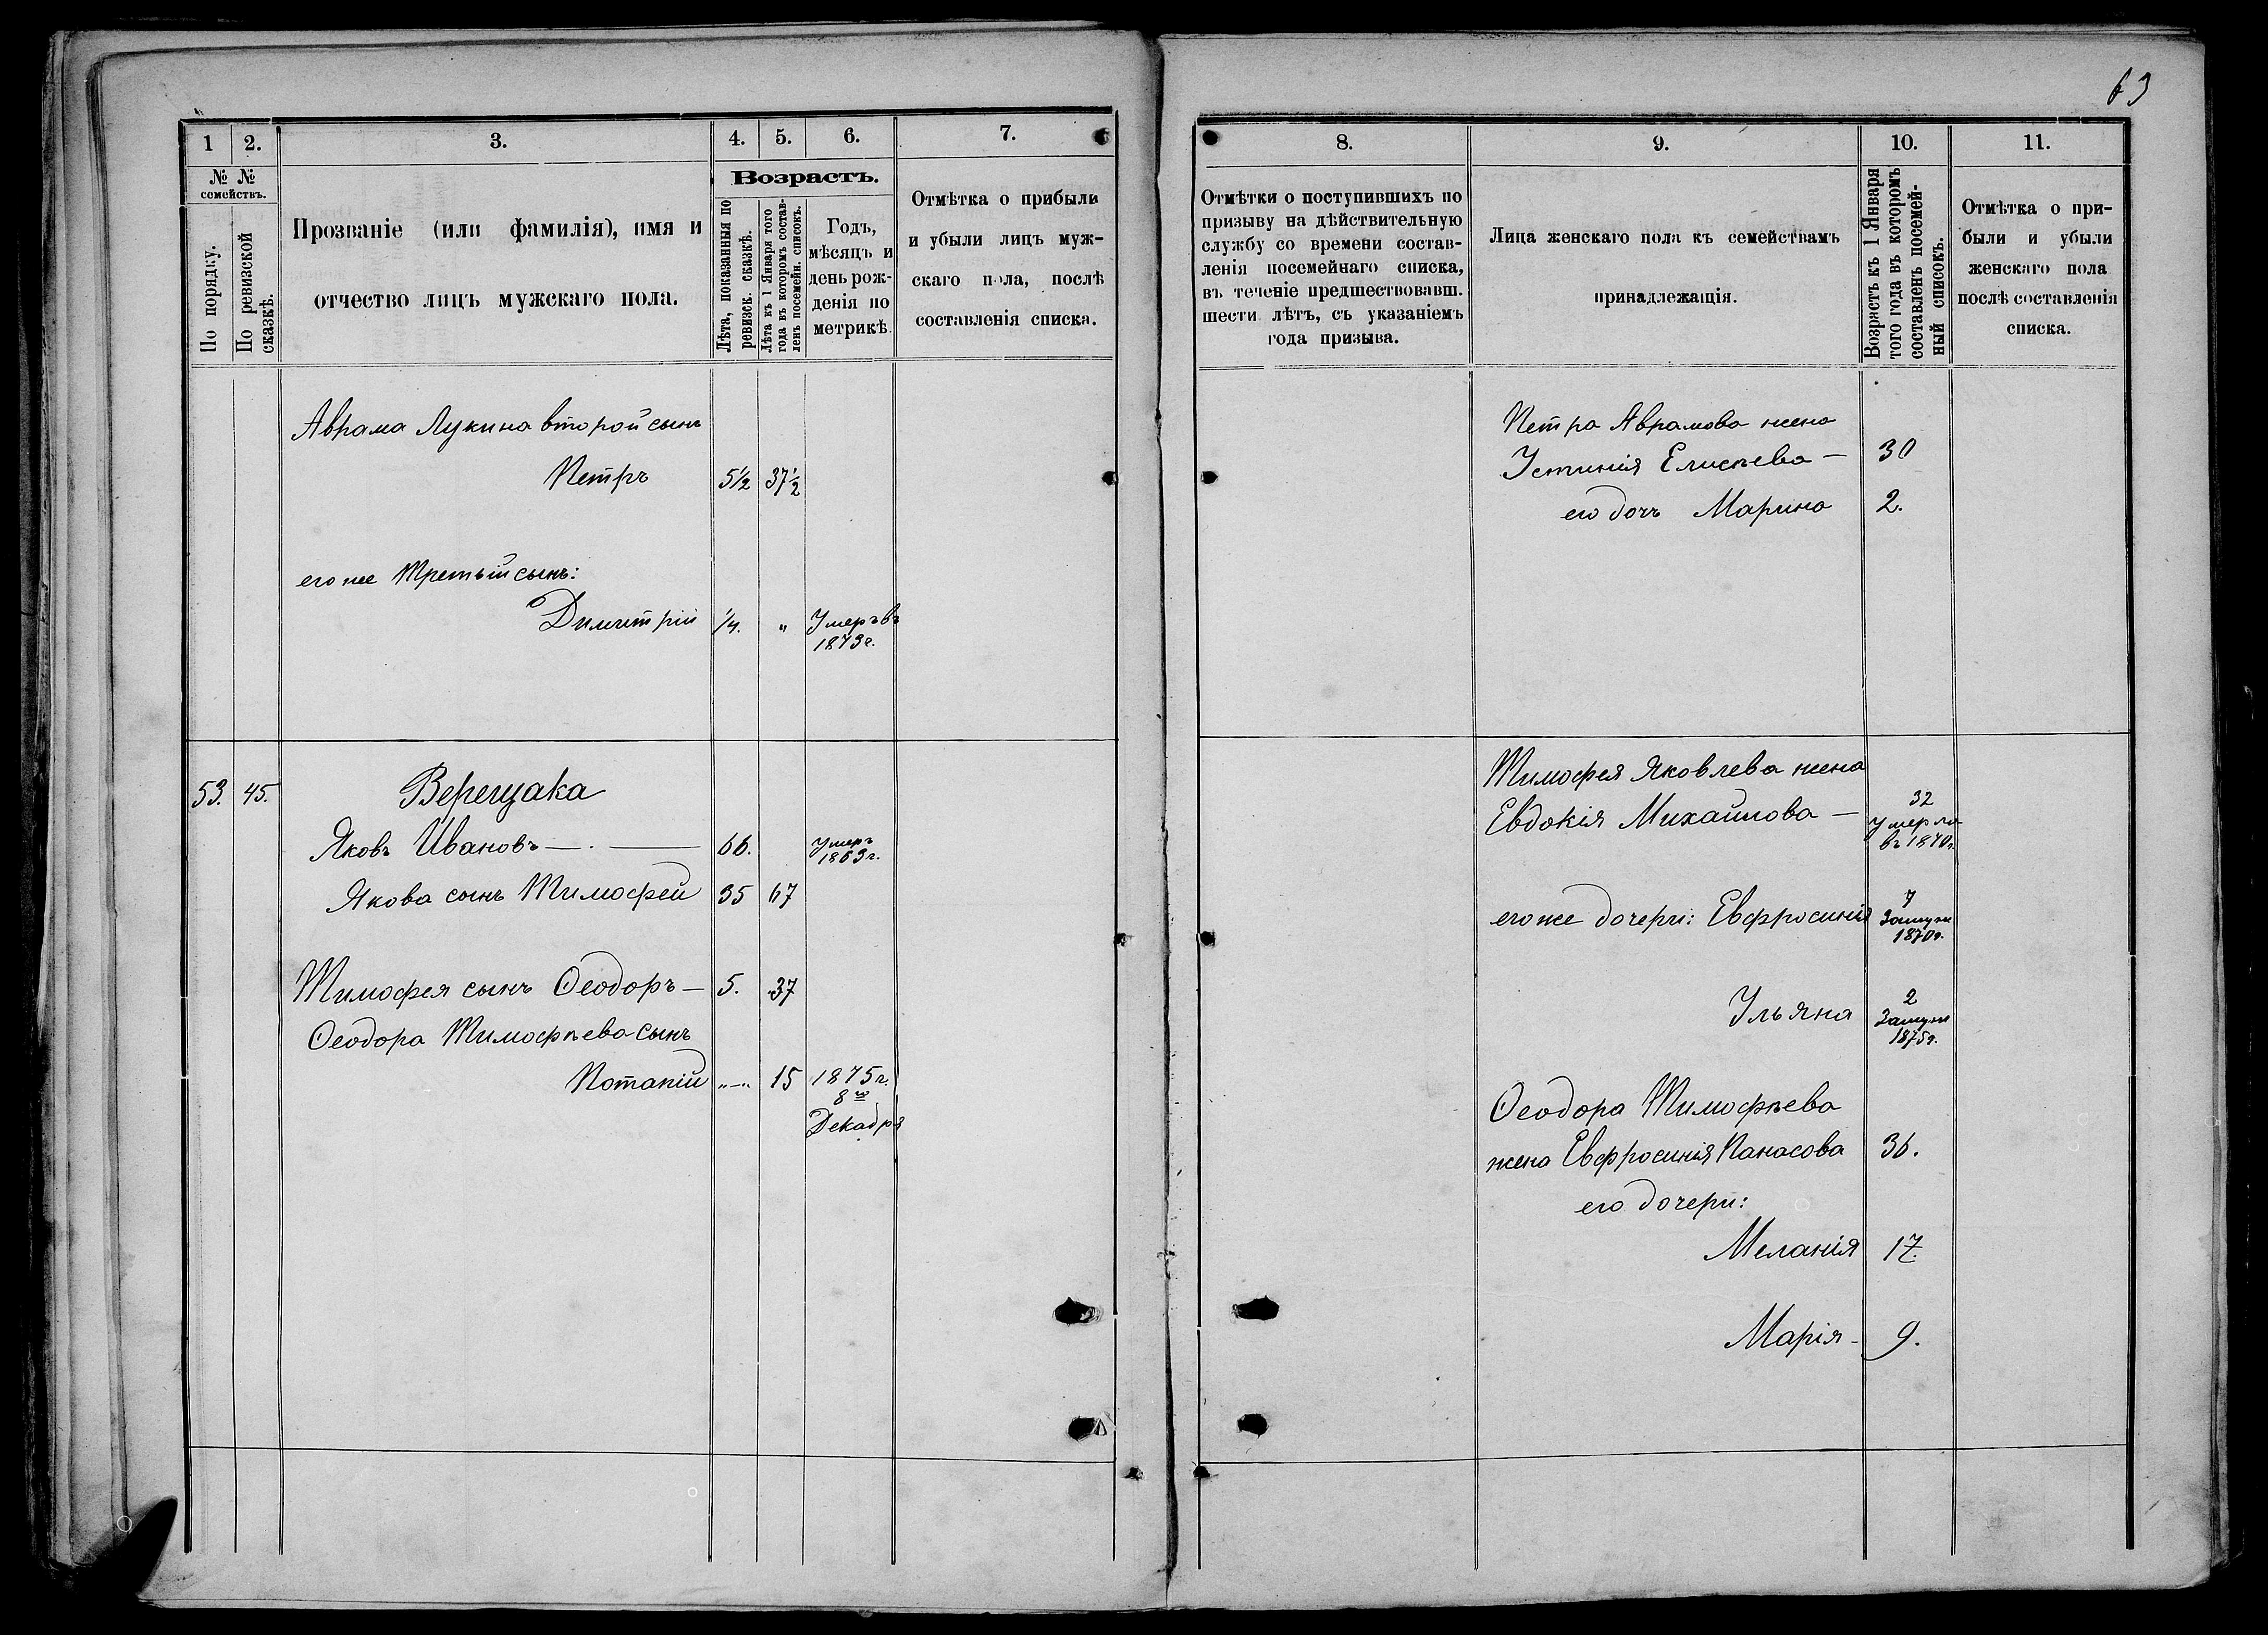 63
1
2.
3.
4.
5.
6.
7.
№ №
семействъ.
По порядку.
По ревизской
сказкѣ.
Прозваніе (или фамилія), имя и
отчество лицъ мужскаго пола.
Возрастъ.
Лѣта, показанныя по
ревизск. сказкѣ.
Лѣта къ 1 Января того
года въ которомъ состав-
ленъ посемейн. списокъ.
Годъ,
мѣсяцъ и
день рож-
денія по
метрикѣ.
Отмѣтка о прибыли
и убыли лицъ муж-
скаго пола, послѣ
составленія списка.
Аврама Лукина второй сынъ
Петръ 5½ 37½
его же Третьій сынъ:
Димитрій ¼. " Умеръ въ
1873г.
53. 45. Верещака
Яковъ Ивановъ — . — 66. Умеръ
1863г.
Якова сынъ Тимофей 35 67
Тимофея сынъ Ѳеодоръ — 5. 37
Ѳеодора Тимофѣева сынъ
Потапій "—" 15 1875г.
8го
Декабря
8.
9.
10.
11.
Отмѣтки о поступившихъ по
призыву на дѣйствительную
службу со времени состав-
ленія посемейнаго списка,
въ теченіе предшествовавш.
шести лѣтъ, съ указаніемъ
года призыва.
Лица женскаго пола къ семействамъ
принадлежащія.
Возрастъ къ 1 Января
того года въ которомъ
составленъ посемей-
ный списокъ.
Отмѣтка о при-
были и убыли
женскаго пола
послѣ составленія
списка.
Петра Аврамова жена
Устинія Елисѣева — 30
его дочь Марина 2.
Тимофея Яковлева жена
Евдокія Михайлова — 32
умерла
въ 1870г.
его же дочери: Евфросинія 7
Замуж
1870г.
Ульяна 2
Замуж
1875г.
Ѳеодора Тимофѣева
жена Евфросинія Панасова 36.
его дочери:
Меланія 17.
Марія — 9.